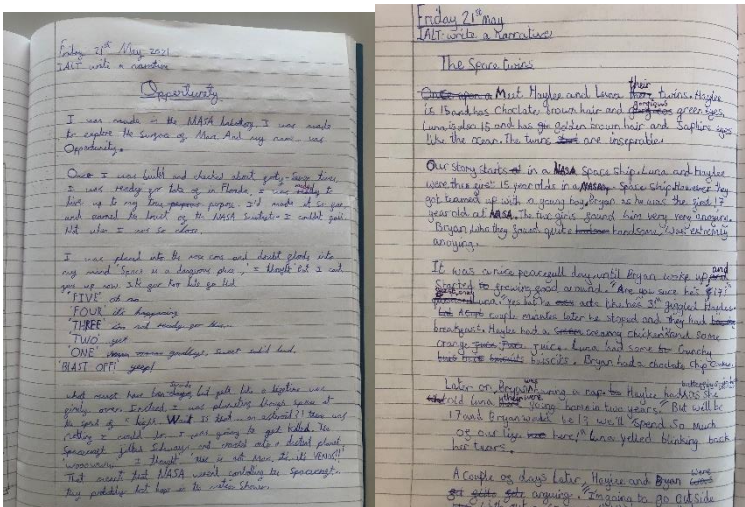 Friday 21st May, 2021
IALT: write a narrative
Oppertunity
I was made in the NASA labotory. I was made
to explore the surface of Mars. And my name was
Oppertunity.
Once I was built and checked about forty-four times
I was ready for take of in Florida. I was ready to
live up to my purpose. I'd made it so far
and earned the trust of the NASA I couldnt fail
Not when I was so close.
I was placed into the nose cone and doubt floods into
my mind 'Space is a dangerous place,' I thought But I cant
give up now It's far too late to go
'FIVE' oh no
'FOUR' its happening
'THREE' im not ready for this...
'TWO' yet
'ONE' goodbye, sweet land.
'BLAST OFF!' yeep!
what must have been seconds but felt like a lifetime was
finally over. Instead, I was plumeting through space at
the speed of light. What is that an asteroid?! there was
nothing I could do. I was going to get killed. The
Spacecraft and crashed into a distant planet
I thought. This is not Mars, its VENUS!!
That meant that NASA wasn't controling the Spacecraft.
They probably lost hope in the meteor shower.
Friday 21st May
IALT: write a narrative
The Space twins
Once upon a Meet Haylee and Luna their twins. Haylee
is 15 and has Choclate brown hair and gorgious green eyes,
Luna is also 15 and has golden brown hair and Saphire eyes
like the ocean. The twins are inseprable.
Our story starts in a NASA space ship. Luna and haylee
were the first 15 year olds in a NASA Space Ship. However they
got teamed up with a young boy, Bryan as he was the first 17
year old at NASA. The two girls found him very very anoying.
Bryan, who they found quite handsome, was extremly
anoying.
It was a nice peacefull day until Bryan woke up and
started to throwing food around. "Are you sure he's 17?"
Luna. "yes but he acts like hes 3!" giggled Haylee.
A couple minutes later he stoped and they had
breakfast. Haylee had a creamy chicken and some
orange juice. Luna had some Crunchy
biscuits. Bryan had a choclate chip
Later on, Bryan was having a nap. Haylee had
told Luna they were going home in two years." But will be
17 and Bryan would be 19 we'll spend so much
of our lives here!" Luna yelled blinking back
her tears.
A Couple of days later, Haylee and Bryan were
arguing. "Im going to go outside